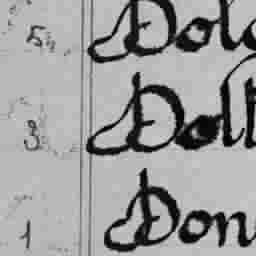 5 Dol
3 Doll
1 Don